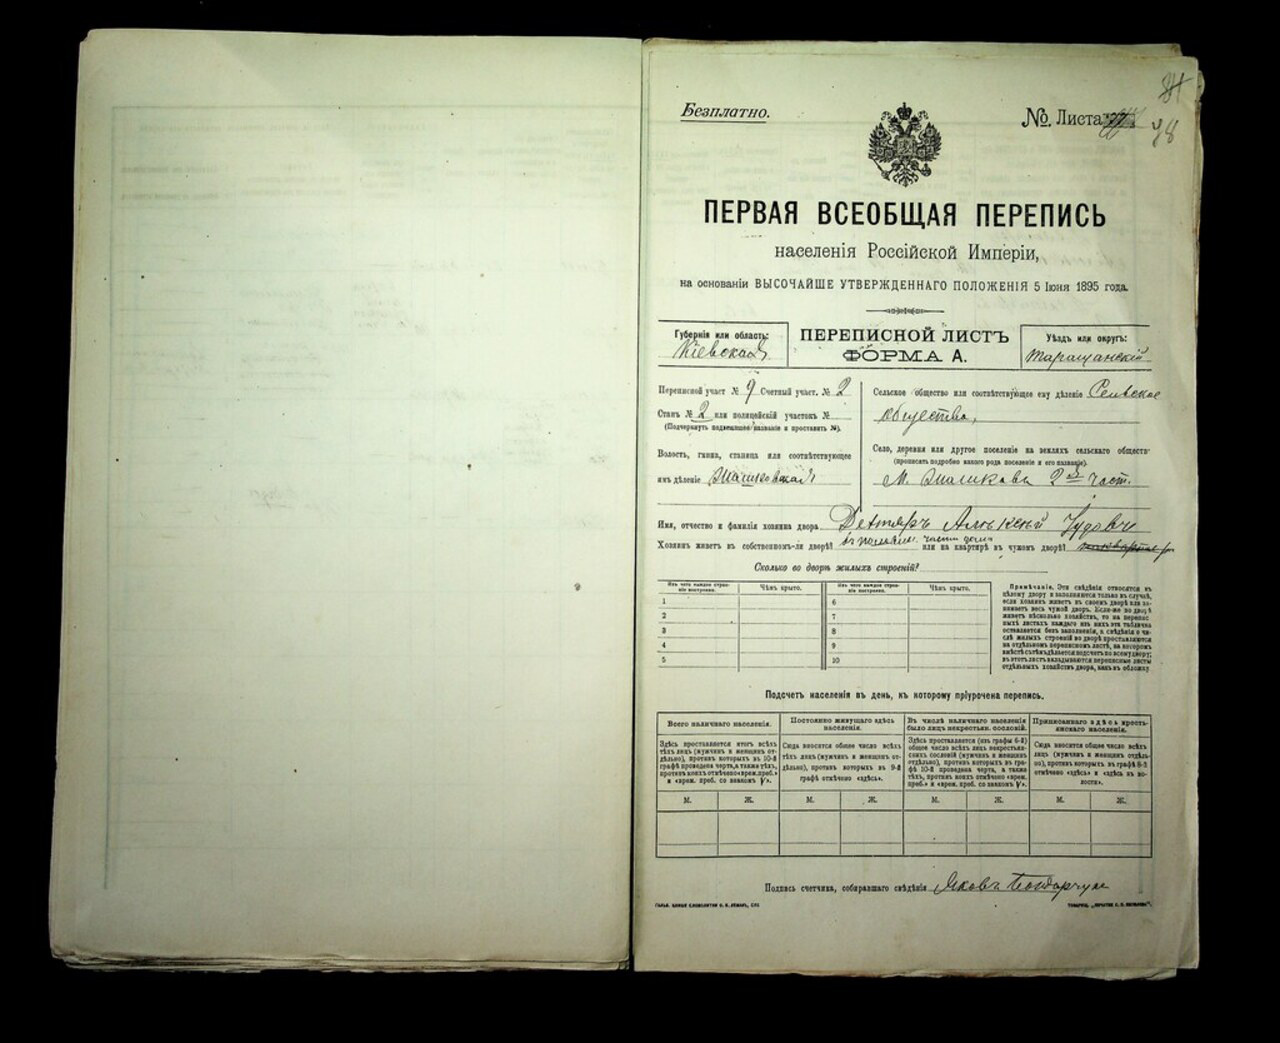 Безплатно.
№ Листа
78
ПЕРВАЯ ВСЕОБЩАЯ ПЕРЕПИСЬ
населенія Россійской Имперіи,
на основаніи ВЫСОЧАЙШЕ УТВЕРЖДЕННАГО ПОЛОЖЕНІЯ 5 Іюня 1895 года.
Губернія или область:
Кіевская
ПЕРЕПИСНОЙ ЛИСТЪ
ФОРМА А.
Уѣздъ или округъ:
Таращанскій
Переписной участ № 9 Счетный участ. № 2
Станъ № 2 или полицейскій участокъ №
(Подчеркнуть подлежащее названіе и проставить №).
Волость, гмина, станица или соотвѣтствующее
имъ дѣленіе
Сельское общество или соотвѣтствующее ему дѣленіе
общество,
Село, деревня или другое поселеніе на земляхъ сельскаго обществ:
(прописать подробно какого рода поселеніе и его названіе).
М. 2й част.
Имя, отчество и фамилія хозяина двора
Хозяинъ живетъ въ собственномъ-ли дворѣ? части дома или на квартирѣ въ чужомъ дворѣ?
Сколько во дворѣ жилыхъ строеній?
Изъ чего каждое строеніе построено. Чѣмъ крыто. Изъ чего каждое строеніе построено. Чѣмъ крыто.
1 6
2 7
3 8
4 9
5 10
Примѣчаніе. Эти свѣдѣнія относятся къ
цѣлому двору и заполняются только въ случаѣ,
если хозяинъ живетъ въ своемъ дворѣ или занимаетъ весь чужой дворъ. Если-же во дворѣ
живетъ нѣсколько хозяйствъ, то на переписныхъ листахъ каждаго изъ нихъ эта табличка
оставляется безъ заполненія, а свѣдѣнія о числѣ жилыхъ строеній во дворѣ проставляются
на отдѣльномъ переписномъ листѣ, на которомъ
вмѣстѣ съ тѣмъ дѣлается подсчетъ по всему двору;
въ этотъ листъ вкладываются переписные листы
отдѣльныхъ хозяйствъ двора, какъ въ обложку.
Подсчетъ населенія въ день, къ которому пріурочена перепись.
Всего наличнаго населенія.
Здѣсь проставляется итогъ всѣхъ
тѣхъ лицъ (мужчинъ и женщинъ отдѣльно), противъ которыхъ въ 10-й
графѣ проведена черта, а также тѣхъ,
противъ коихъ отмѣчено «врем. преб.»
Постоянно живущаго здѣсь
населенія.
Сюда вносится общее число всѣхъ
тѣхъ лицъ (мужчинъ и женщинъ отдѣльно), противъ которыхъ въ 9-й
графѣ отмѣчено «здѣсь».
Въ числѣ наличнаго населенія
было лицъ некрестьян. сословій.
Здѣсь проставляется (изъ графы 6-й)
общее число всѣхъ лицъ некрестьянскихъ сословій (мужчинъ и женщинъ
отдѣльно), противъ которыхъ въ графѣ 10-й проведена черта, а также
тѣхъ, противъ коихъ отмѣчено «врем.
преб.»
Приписаннаго здѣсь крестьянскаго населенія.
Сюда вносится общее число всѣхъ
лицъ (мужчинъ и женщинъ отдѣльно), противъ которыхъ въ графѣ 8-й
отмѣчено «здѣсь» и «здѣсь въ волости».
М. Ж. М. Ж. М. Ж. М. Ж.
Подпись счетчика, собиравшаго свѣдѣнія Яковъ Бондарчук